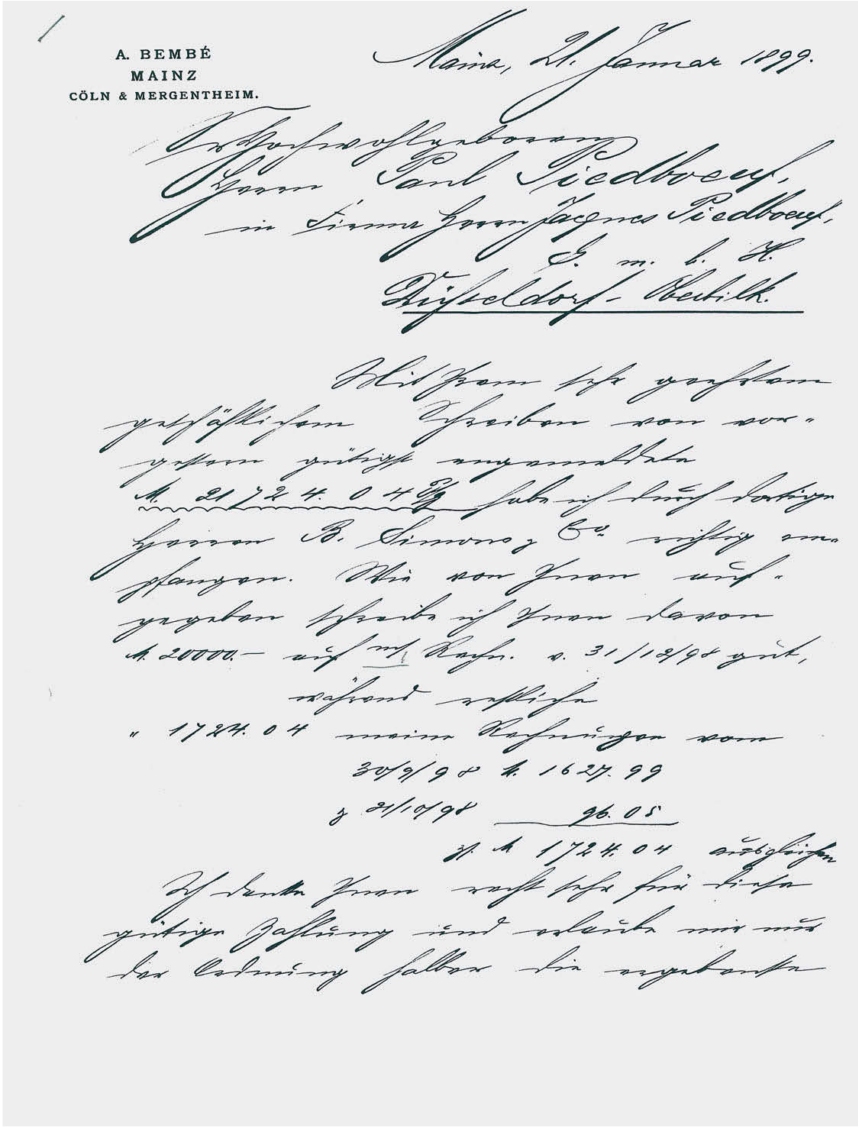 A. BEMBÉ
MAINZ
CÖLN & MERGENTHEIM.
Mainz, 21. Januar 1899.
Sr Hochwohlgeboren
Herrn Paul Piedboeuf,
in Firma Herrn Jacques Piedboeuf,
G. m. b. H.
Düsseldorf-Oberbilk.
Mit Ihrem sehr geehrten
geschäftlichem Schreiben von vor-
gestern gütigst angemeldete
M. 21724.04 Pfg habe ich durch dortige
Herren B. Simons & Co. richtig em-
pfangen. Wie von Ihnen auf-
gegeben schreibe ich Ihnen davon
M. 20000.– auf m/ Rechn. v. 31/12/98 gut,
während restliche
" 1724.04 meine Rechnungen vom
30/9/98 M. 1627.99
& 21/10/98 96.05
M 1724.04 ausgleichen
Ich danke Ihnen recht sehr für diese
gütige Zahlung und erlaube mir nur
der Ordnung halber die ergebenste